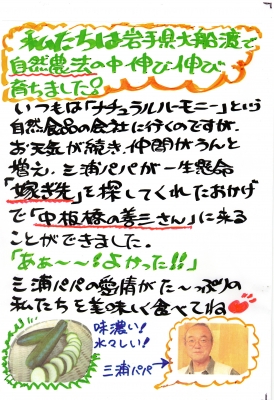 私たちは岩手県大船渡で
自然農法の中伸び伸び
育ちました!
いつもは「ナチュラルハーモニー」という
自然食品の会社に行くのですが、
お天気が続き、仲間がうんと
増え、三浦パパが一生懸命
「嫁ぎ先」を探してくれたおかげ
で「中板橋の善三さん」に来る
ことができました。
「あぁ〜〜!よかった!!」
三浦パパの愛情がた〜っぷりの
私たちを美味しく食べてね
味濃い!
水々しい!
三浦パパ→